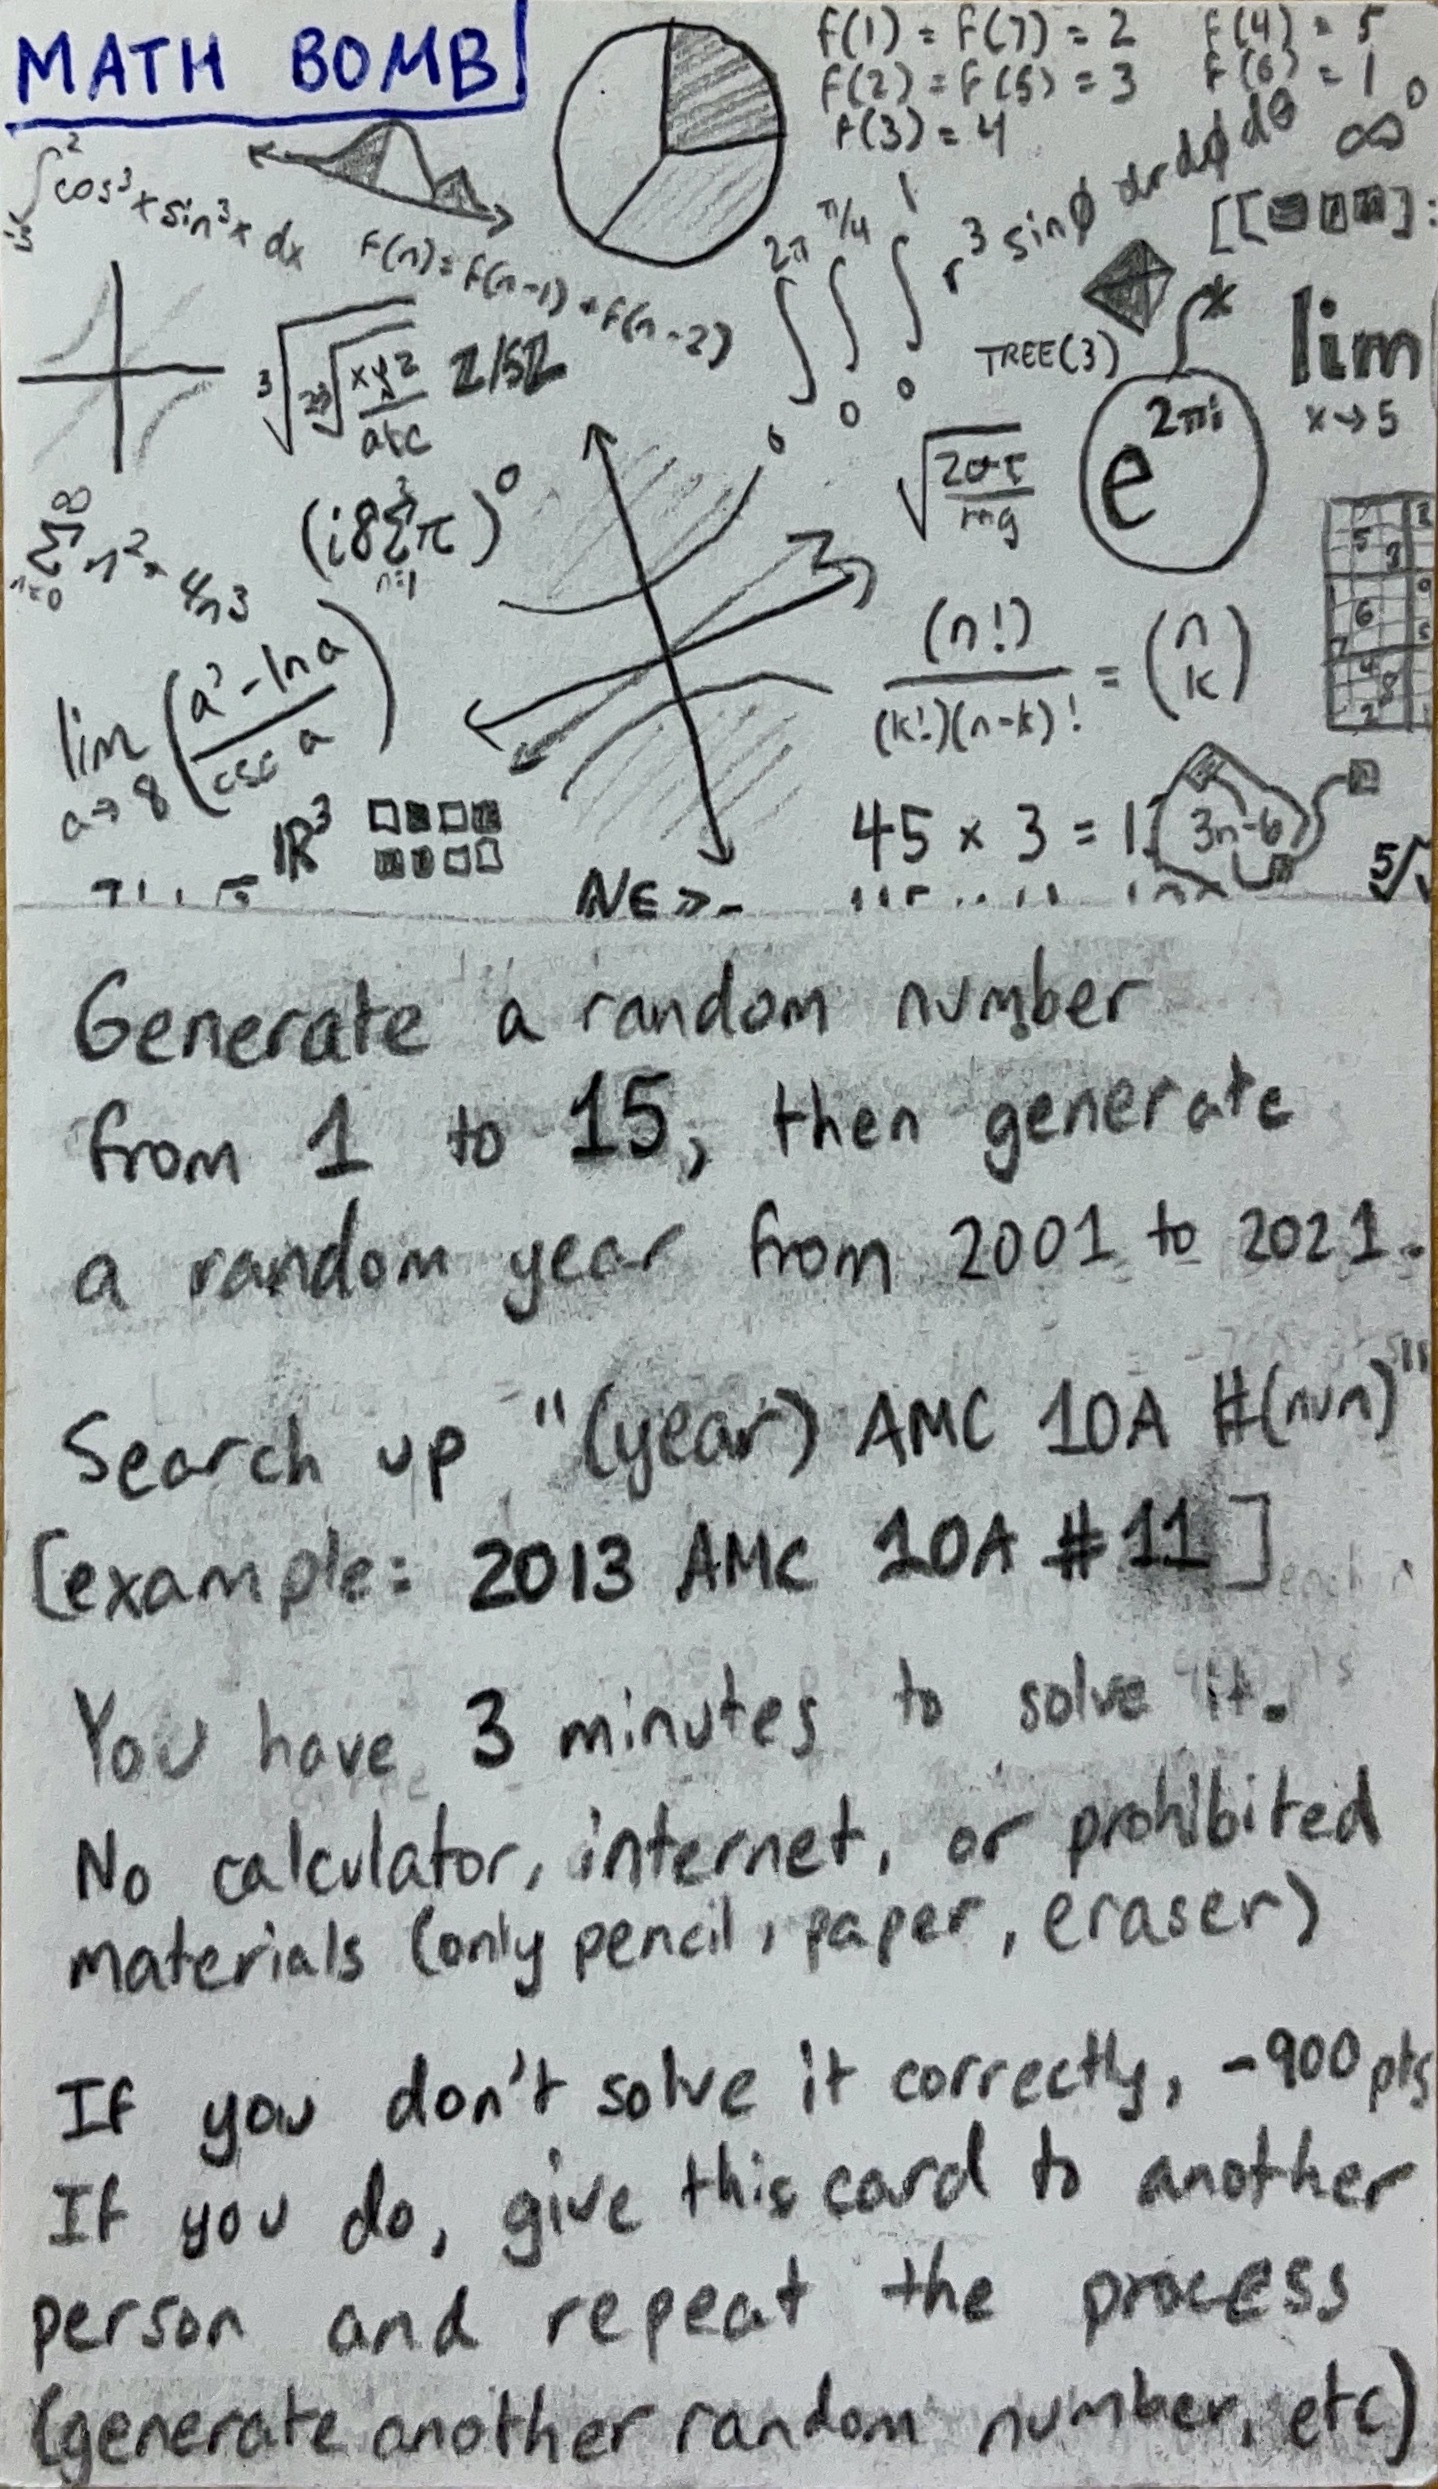 MATH BOMB
f(1) = f(7) = 2 f(4) = 5
f(2) = f(5) = 3 f(6) = 1
f(3) = 4
∞⁰
cos³x sin³x dx
f(n) = f(n-1) + f(n-2)
2π π/4 1
∫ ∫ ∫ r³ sinφ dr dφ dθ
0 0 0
TREE(3)
lim
x→5
ℤ/5ℤ
e^2πi
(n!)
(k!)(n-k)! = (n k)
lim
a→8
csc a
ℝ³
45 × 3 = 1
3n-6
Generate a random number
from 1 to 15, then generate
a random year from 2001 to 2021.
Search up "(year) AMC 10A #(num)"
[example: 2013 AMC 10A #11]
You have 3 minutes to solve it.
No calculator, internet, or prohibited
materials (only pencil, paper, eraser)
If you don't solve it correctly, -900 pts
If you do, give this card to another
person and repeat the process
(generate another random number, etc)